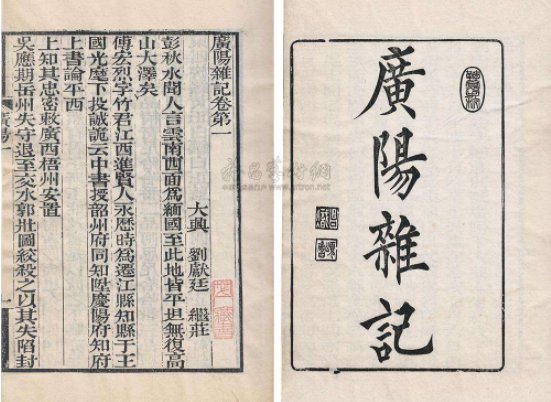 廣陽雜記
廣陽雜記卷第一
大興 劉獻廷 繼莊
彭秋水聞人言雲南西面爲緬國至此地皆平坦無復高
山大澤矣
傅宏烈字竹君江西進賢人永曆時爲遷江縣知縣于王
國光麾下投誠詭云中書授韶州府同知陞慶陽府知府
上書論平西
上知其忠密敕廣西梧州安置
吳應期岳州失守退至交水郭壯圖絞殺之以其失陷封
廣陽一
一